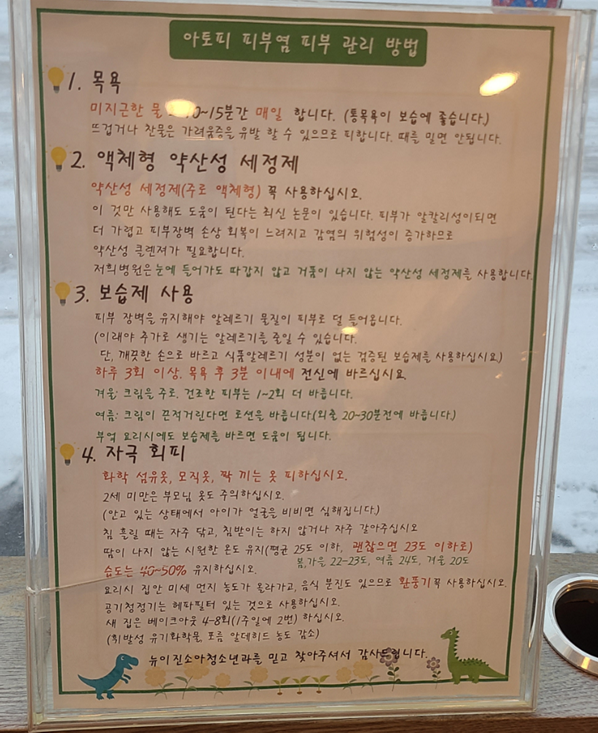 아토피 피부염 피부 관리 방법
1. 목욕
미지근한 물 10~15분간 매일 합니다. (통목욕이 보습에 좋습니다.)
뜨겁거나 찬물은 가려움증을 유발 할 수 있으므로 피합니다. 때를 밀면 안됩니다.
2. 액체형 약산성 세정제
약산성 세정제(주로 액체형) 꼭 사용하십시오.
이 것만 사용해도 도움이 된다는 최신 논문이 있습니다. 피부가 알칼리성이되면
더 가렵고 피부장벽 손상 회복이 느려지고 감염의 위험성이 증가하므로
약산성 클렌져가 필요합니다.
저희병원은눈에 들어가도 따갑지 않고 거품이 나지 않는 약산성 세정제를 사용합니다.
3. 보습제 사용
피부 장벽을 유지해야 알레르기 물질이 피부로 덜 들어옵니다.
(이래야 추가로 생기는 알레르기를 줄일 수 있습니다.
단, 깨끗한 손으로 바르고 식품알레르기 성분이 없는 검증된 보습제를 사용하십시요.)
하루 3회 이상, 목욕 후 3분 이내에 전신에 바르십시요.
겨울: 크림을 주로, 건조한 피부는 1~2회 더 바릅니다.
여름: 크림이 끈적거린다면 로션을 바릅니다(외출 20-30분전에 바릅니다.)
부엌 요리시에도 보습제를 바르면 도움이 됩니다.
4. 자극 회피
화학 섬유옷, 모직옷, 꽉 끼는 옷 피하십시오.
2세 미만은 부모님 옷도 주의하십시오.
(안고 있는 상태에서 아이가 얼굴을 비비면 심해집니다.)
침 흘릴 때는 자주 닦고, 침받이는 하지 않거나 자주 갈아주십시오
땀이 나지 않는 시원한 온도 유지(평균 25도 이하, 괜찮으면 23도 이하로)
습도는 40-50% 유지하십시오. 봄,가을 22-23도, 여름 24도, 겨울 20도
요리시 집안 미세 먼지 농도가 올라가고, 음식 분진도 있으므로 환풍기꼭 사용하십시오.
공기청정기는 헤파필터 있는 것으로 사용하십시오.
새 집은 베이크아웃 4-8회(1주일에 2번) 하십시오.
(휘발성 유기화학물, 포름 알데히드 농도 감소)
뉴이진소아청소년과를 믿고 찾아주셔서 감사드립니다.